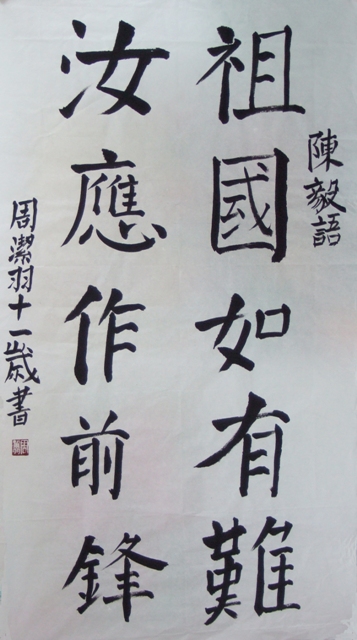 陳毅語
祖國如有難
汝應作前鋒
周潔羽十一歲書